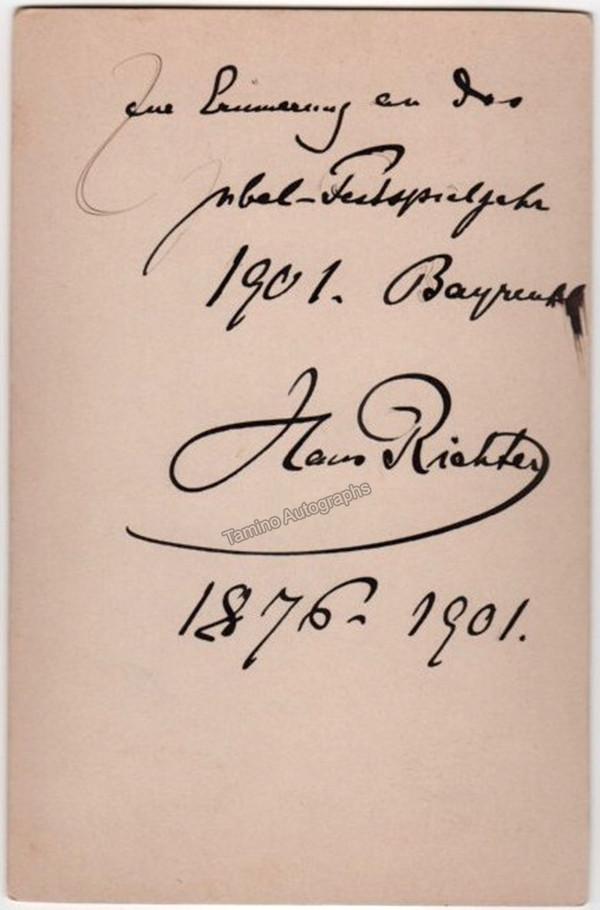 Zur Erinnerung an das
Jubel-Festspieljahr
1901. Bayreuth
Hans Richter
Tamino Autographs
1876-1901.